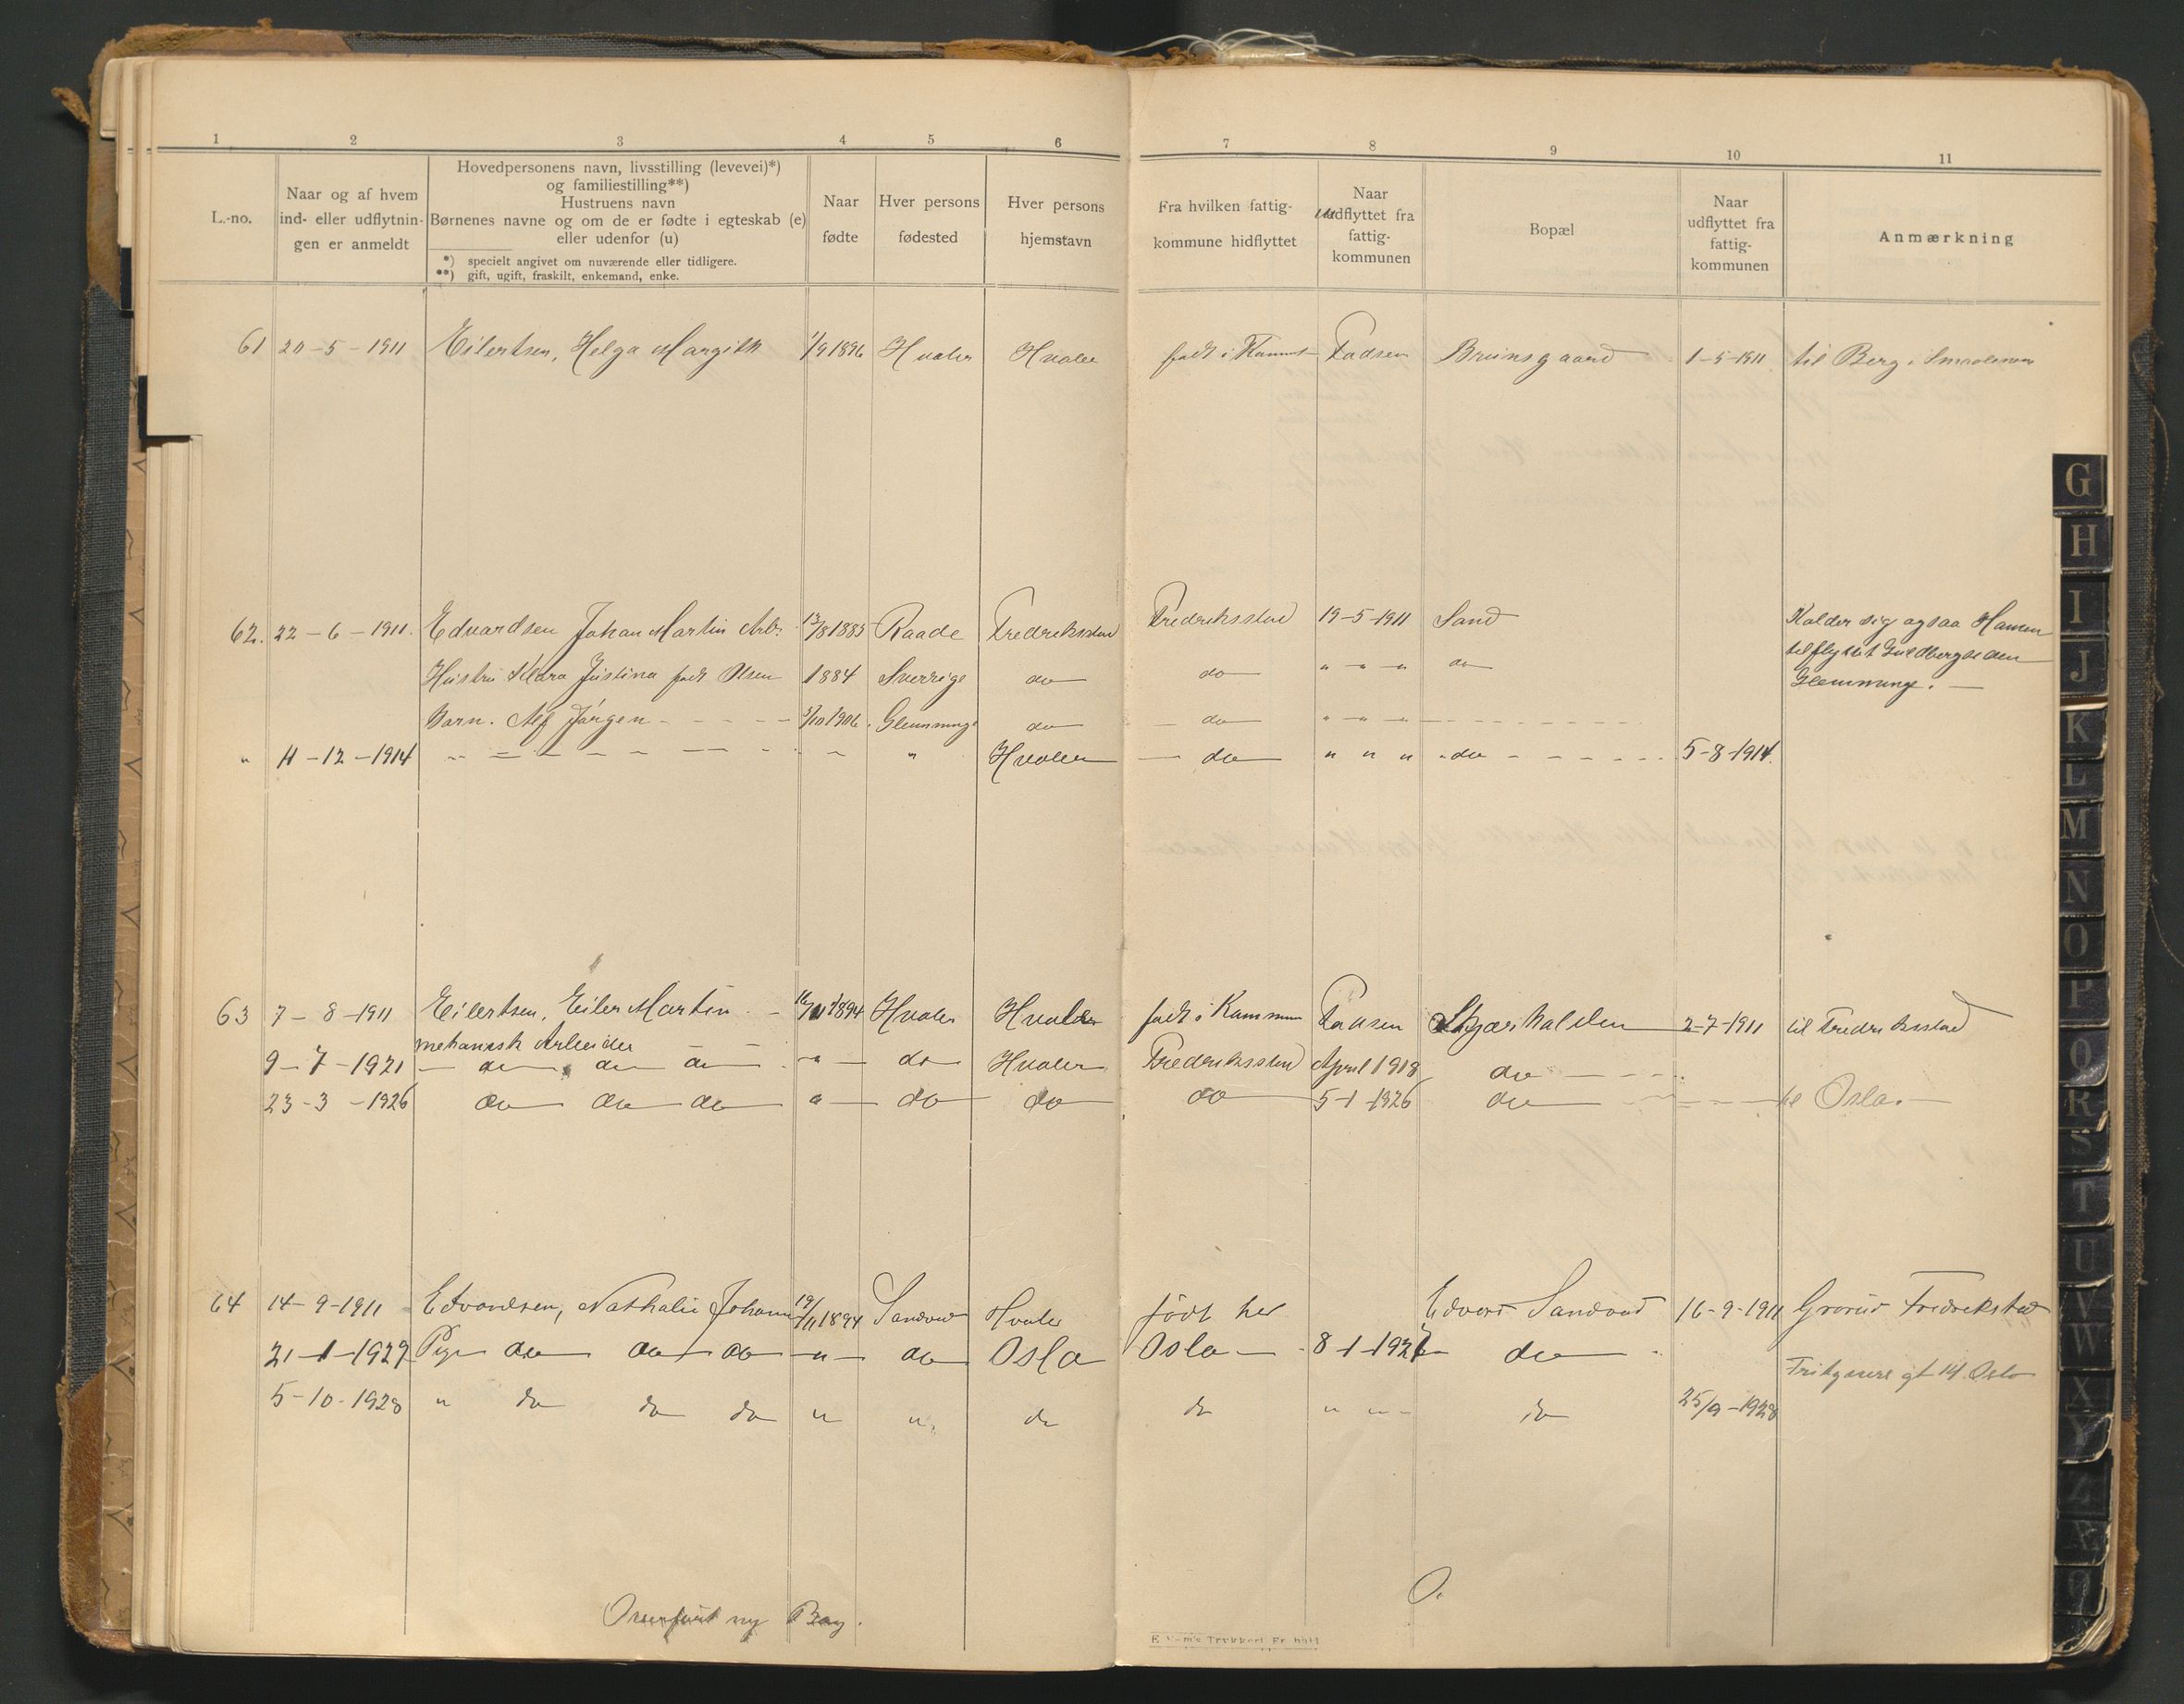 1 2 3 4 5 6 7 8 9 10 11
L.-no.
Naar og af hvem
ind- eller udflytnin-
gen er anmeldt
Hovedpersonens navn, livsstilling (levevei)*)
og familiestilling**)
Hustruens navn
Børnenes navne og om de er fødte i egteskab (e)
eller udenfor (u)
*) specielt angivet om nuværende eller tidligere.
**) gift, ugift, fraskilt, enkemand, enke.
Naar
fødte
Hver persons
fødested
Hver persons
hjemstavn
Fra hvilken fattig-
kommune hidflyttet
Naar
indflyttet fra
fattig-
kommunen
Bopæl
Naar
udflyttet fra
fattig-
kommunen
Anmærkning
61 20-5-1911 Eilertsen, Helga Margith 1/9 1896 Hvaler Hvaler født i Komm Fadsen Bruinsgaard 1-5-1911 til Berg i Smaalenene
62. 22-6-1911. Edvardsen Johan Martin Arb. 13/8 1885 Raade Fredriksstad Fredriksstad 19-5-1911 Sand Kalder sig ogsaa Hansen
Hustru Klara Justina født Olsen 1884 Sverrige do do " " " do tilflyttet Guldbergsiden
Barn. Alf Jørgen 5/10 1906. Glemminge do do " " " Glemminge.
" 11-12-1914 " Hvaler do " " " do 5-8-1914.
63 7-8-1911 Eilertsen, Eiler Martin 16/11 1894 Hvaler Hvaler født i Kommun Fadsen Skjærhalden 2-7-1911 til Fredriksstad
mekanisk Arbeider
9-7-1921 do do do " do Hvaler Fredriksstad April 1918 do
23-3-1926 do do do " do do do 5-1-1926 do til Oslo.
64 14-9-1911 Edvardsen, Nathalie Johanne 19/11 1894 Sandvad Hvaler født her Edvard Sandvad 16-9-1911 Fredrikstad
21-1-1927 Pige do do do " do Oslo Oslo 8-1-1927 do
gt 14 Oslo
5-10-1928 " do do do " " do do " " do 25/9-1928
Overført ny
O.